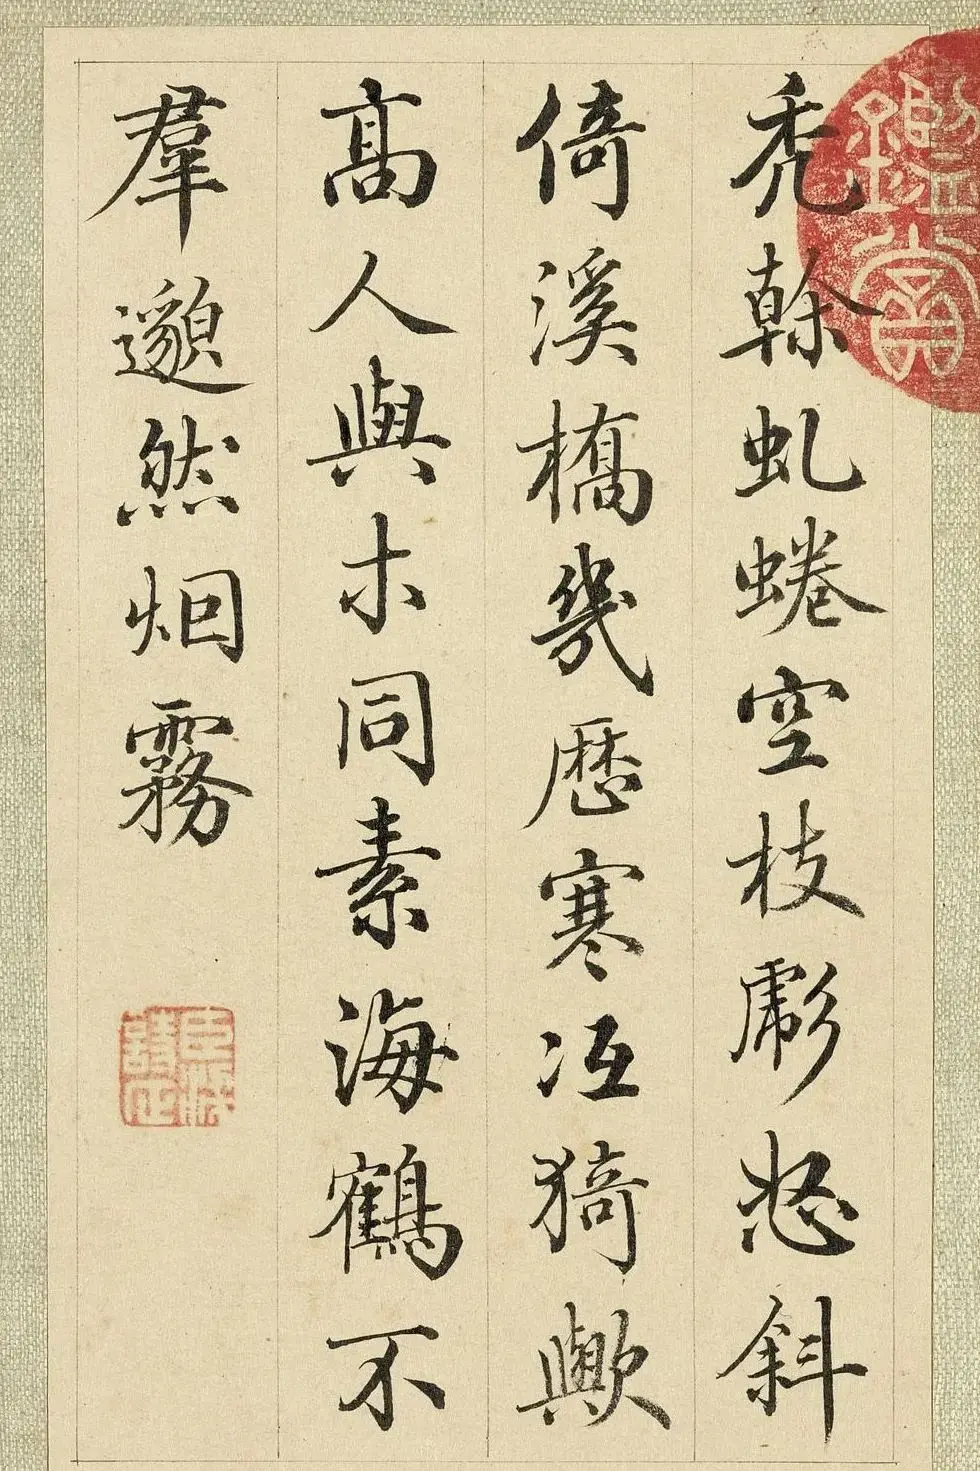 禿榦虬蜷空枝彪怒斜
倚溪橋幾歷寒冱猗歟
高人與木同素海鶴不
羣邈然烟霧
鑑賞